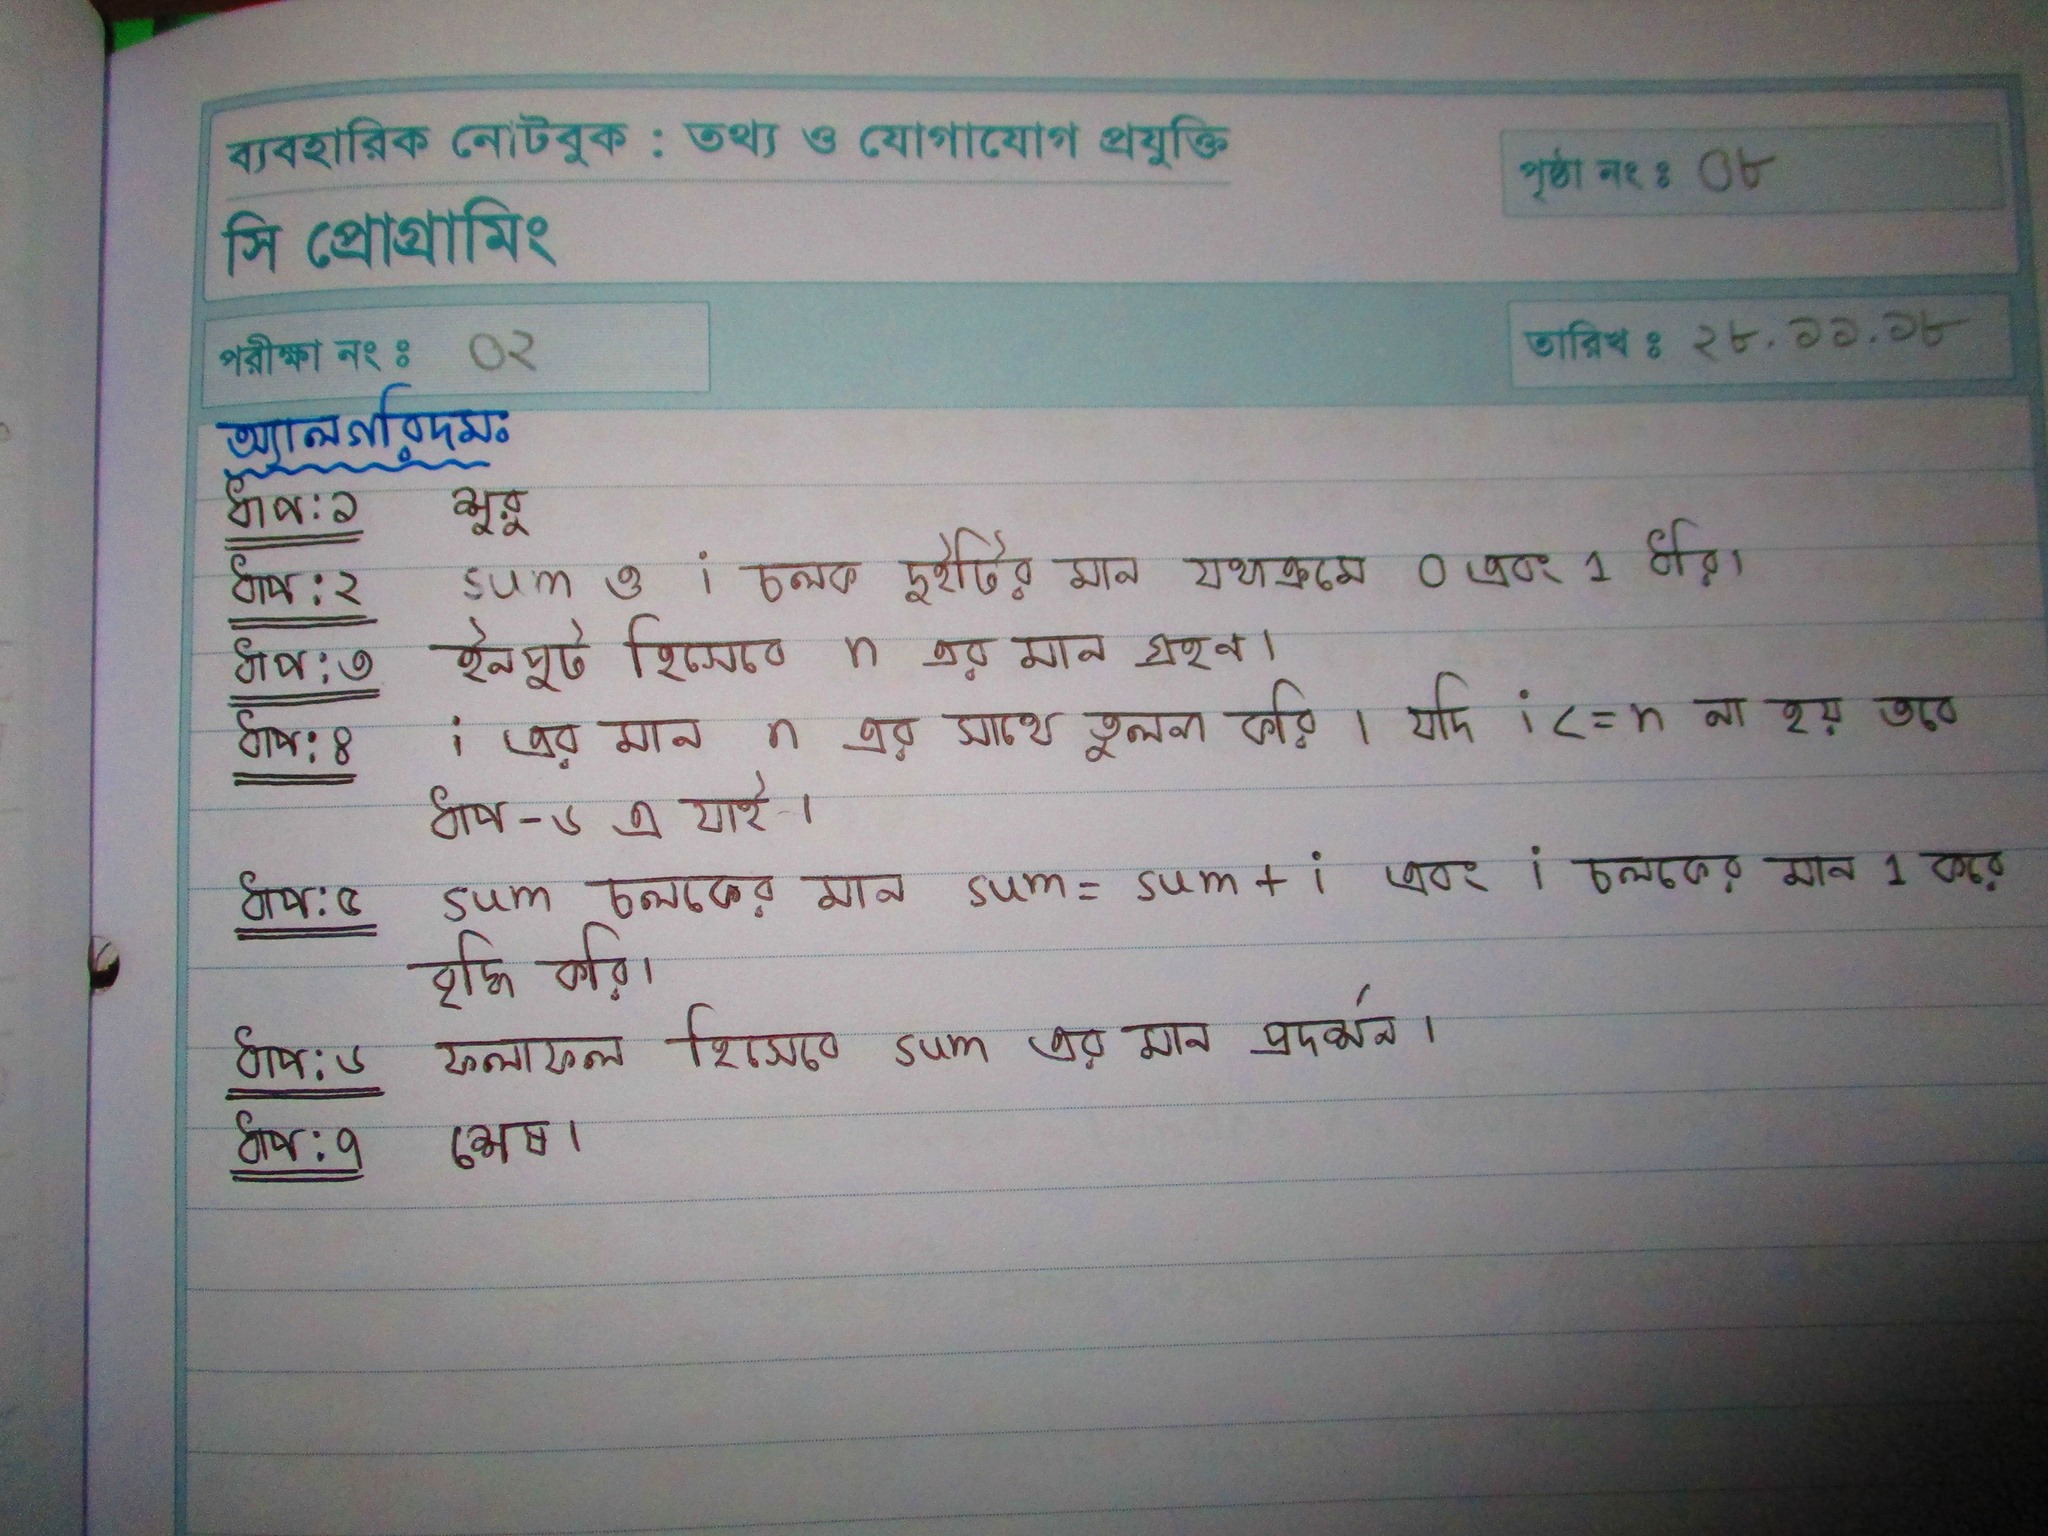 ব্যবহারিক নোটবুক : তথ্য ও যোগাযোগ প্রযুক্তি
পৃষ্ঠা নং : ০৮
সি প্রোগ্রামিং
পরীক্ষা নং : ০২
তারিখ : ২৮.১১.১৮
অ্যালগরিদম:
ধাপ:১ শুরু
ধাপ:২ sum ও i চলক দুইটির মান যথাক্রমে 0 এবং 1 ধরি।
ধাপ:৩ ইনপুট হিসেবে n এর মান গ্রহণ।
ধাপ:৪ i এর মান n এর সাথে তুলনা করি। যদি i <= n না হয় তবে
ধাপ-৬ এ যাই।
ধাপ:৫ sum চলকের মান sum = sum + i এবং i চলকের মান 1 করে
বৃদ্ধি করি।
ধাপ:৬ ফলাফল হিসেবে sum এর মান প্রদর্শন।
ধাপ:৭ শেষ।